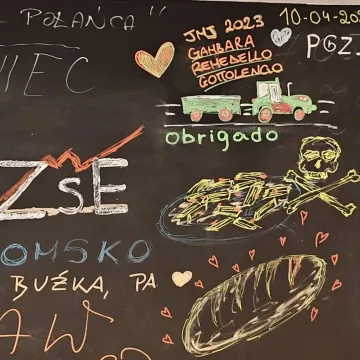 POŁAŃCA"
IEC
JMJ 2023
GAMBARA
REMEDELLO
GOTTOLENGO
10-04-202
obrigado
ZSE
OMSKO
BUŹKA, PA
AW